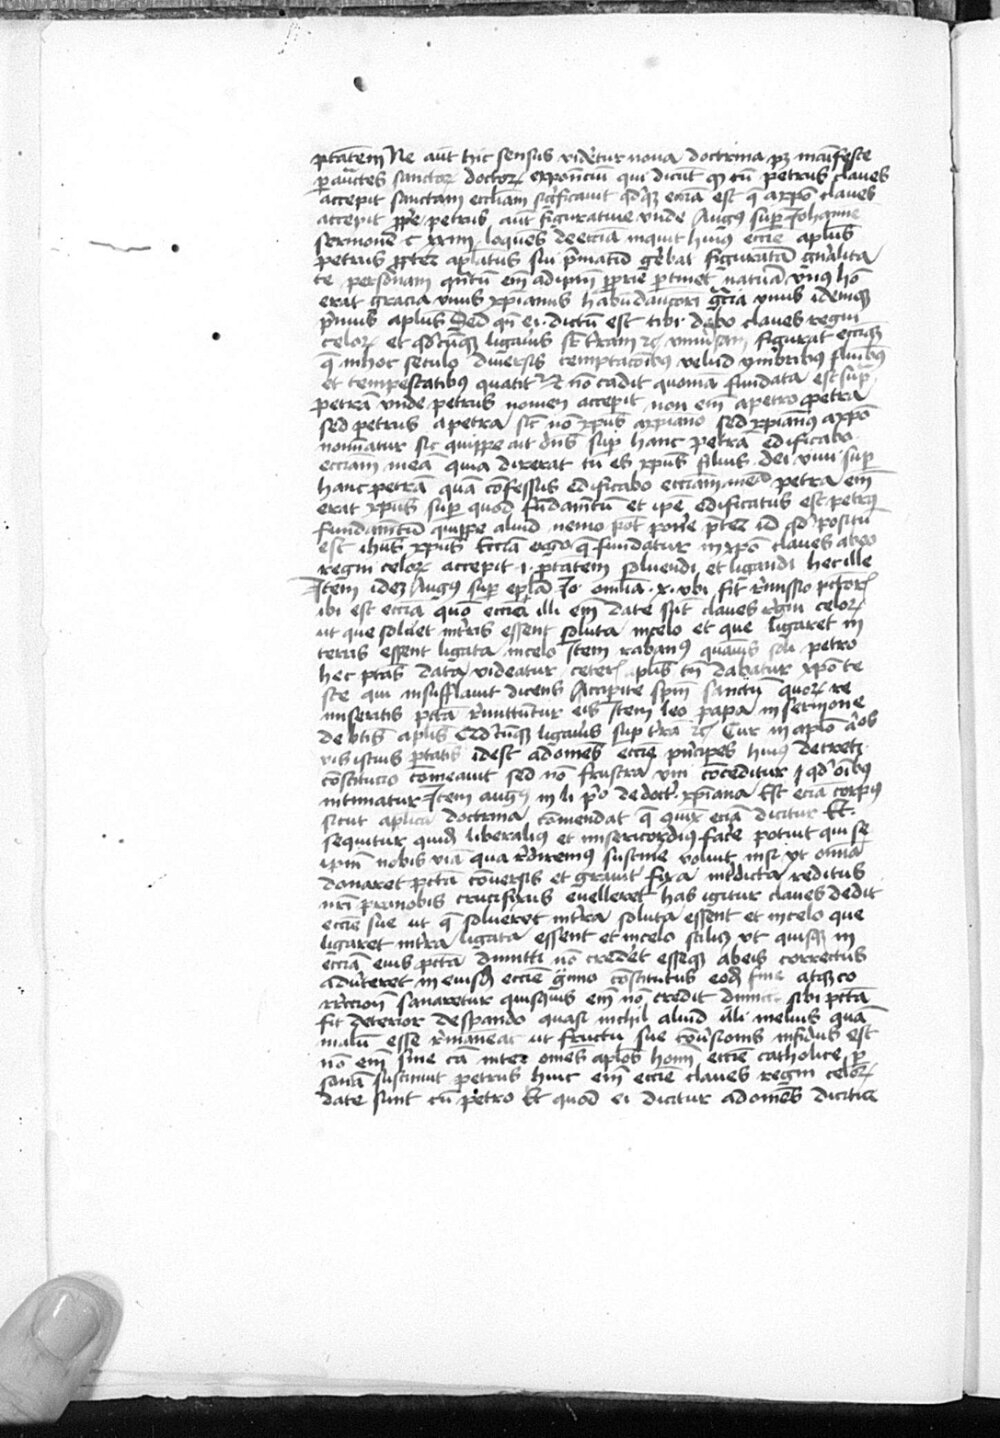 ptatem Ne aut hic sensus videtur noua doctrina pz manifeste
per auctes sanctor doctor exponenciu qui dicut qd cu petrus claues
accepit sanctam eccliam significauit qd
accepit petrus aut figuratiue vnde Augus super Johanne
sermone c xxiiii loquens de eccia inquit huius eccie aplus
petrus propter aplatus sui primatu gerebat figurata gnalita
te personam quatu em ad ipm proprie ptinet natura vnus ho
erat gracia vnus xpianus habundanciori gracia vnus idemqz
primus aplus Sed qn ei dictu est tibi dabo claues regni
celor et qdcuqz ligaueris sr terram rc vniuersam figurat ecciaz
que in hoc seculo diuersis temptacoibus velud ymbribus fluibus
et tempestatibus quatit et no cadit quonia fundata est super
petra vnde petrus nomen accepit non em a petro petra
sed petrus a petra sic no xpus a xpiano sed xpianus a xpo
nominatur sic quippe ait dns super hanc petra edificabo
ecciam mea quia dixerat tu es xpus filius dei viui super
hanc petra qua confessus edificabo ecciam mea petra em
erat xpus super quod fundamtu et ipe edificatus est petrus
fundamtum quippe aliud nemo pot ponere preter id qd positu
est ihus xpus Eccia ergo que fundatur in xpo claues ab eo
regni celor accepit i ptatem soluendi et ligandi hec ille
Item idez Augus super epla Jo omilia x vbi fit remissio pctor
ibi est eccia quo eccia illi em date sut claues regni celor
ut que soluet in tris essent soluta in celo et que ligaret in
terris essent ligata in celo Item rabanus quauis soli petro
hec ptas data videatur ceteris aplis tn dabatur xpo te
ste qui insufflauit dicens Accipite spm sanctu quor re
miseritis pcta remittuntur eis Item leo papa in sermone
de oibus aplis Qdcuqz ligaueris sup tra rc Cur in aplo alios
vis istius ptatis idest ad omes eccie principes huius decreti
constitucio comeauit sed no frustra vni conceditur qd oibus
intimatur Item augus in li po de doct xpiana Est ecia corpus
sicut aplica doctrina comendat que ecia dicitur Et
sequitur quid liberalius et misericordius facere potuit qui se
ipm nobis via qua rediremus sustinere voluit nisi ut omia
donaret pcta conuersis et grauiter fixa interdicta reditus
nri pro nobis crucifixus euelleret has igitur claues dedit
eccie sue ut que solueret in tra soluta essent et in celo que
ligaret in tra ligata essent et in celo scilicz ut quisqz in
eccia eius pcta dimitti no crederet
aduerteret in eiusdem eccie gremio constitutus eode fine atqz co
rreccione sanaretur quisquis em no credit dimitti sibi pcta
fit deterior desperando quasi nichil aliud illi melius quam
malu esse remaneat ut fructu sue couersionis infidus est
no em sine ca inter omes aplos huius eccie catholice per
sona sustinuit petrus huic em eccie claues regni celor
date sunt cu petro Et quod ei dicitur ad omes dicitur